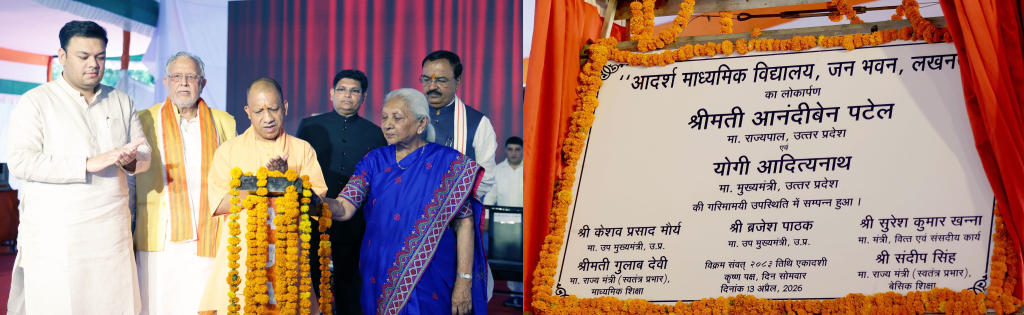 "आदर्श माध्यमिक विद्यालय, जन भवन, लखन
का लोकार्पण
श्रीमती आनंदीबेन पटेल
मा. राज्यपाल, उत्तर प्रदेश
एवं
योगी आदित्यनाथ
मा. मुख्यमंत्री, उत्तर प्रदेश
की गरिमामयी उपस्थिति में सम्पन्न हुआ।
श्री केशव प्रसाद मौर्य
मा. उप मुख्यमंत्री, उ.प्र.
श्री ब्रजेश पाठक
मा. उप मुख्यमंत्री, उ.प्र.
श्री सुरेश कुमार खन्ना
मा. मंत्री, वित्त एवं संसदीय कार्य
श्रीमती गुलाब देवी
मा. राज्य मंत्री (स्वतंत्र प्रभार),
माध्यमिक शिक्षा
विक्रम संवत् २०८३ तिथि एकादशी
कृष्ण पक्ष, दिन सोमवार
दिनांक 13 अप्रैल, 2026
श्री संदीप सिंह
मा. राज्य मंत्री (स्वतंत्र प्रभार),
बेसिक शिक्षा